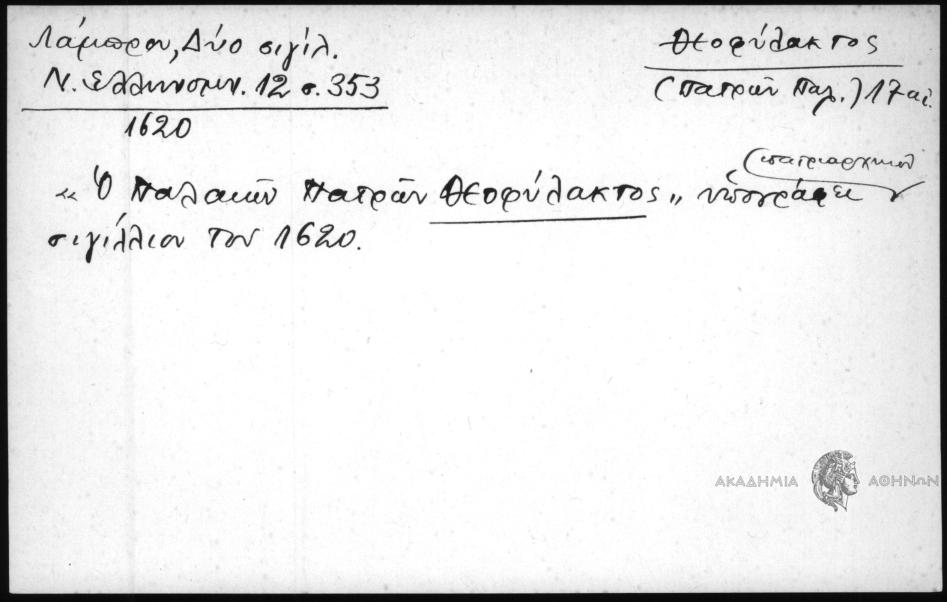 Λάμπρου, Δύο σιγίλ.
Ν. Ελληνομν. 12 σ. 353
1620
Θεοφύλακτος
(Πατρῶν Παλ.) 17 αἰ.
(πατριαρχικὸν
« Ὁ Παλαιῶν Πατρῶν Θεοφύλακτος » ὑπογράφει
σιγίλλιον τοῦ 1620.
ΑΚΑΔΗΜΙΑ ΑΘΗΝΩΝ